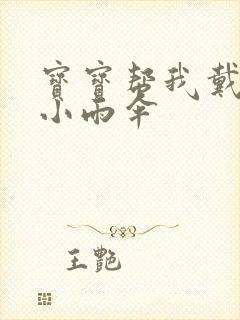 寶寶帮我戴
小雨伞
王艷